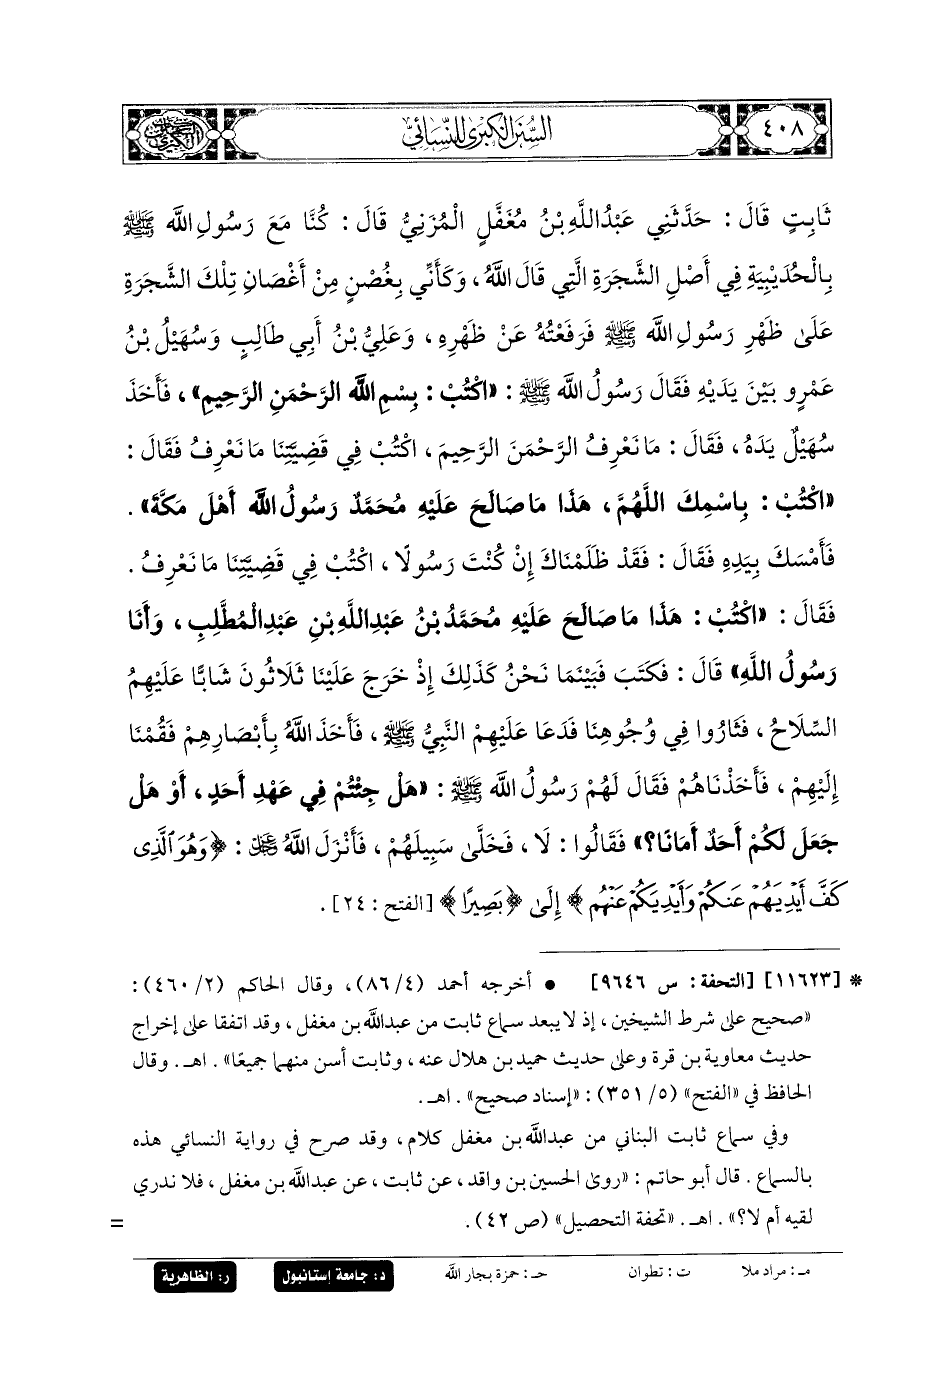 ٤٠٨
السنن الكبرى للنسائي
ثَابِتٍ قَالَ : حَدَّثَنِي عَبْدُاللَّهِ بْنُ مُغَفَّلٍ الْمُزَنِيُّ قَالَ : كُنَّا مَعَ رَسُولِ اللَّه ﷺ
بِالْحُدَيْبِيَةِ فِي أَصْلِ الشَّجَرَةِ الَّتِي قَالَ اللَّهُ ، وَكَأَنِّي بِغُصْنٍ مِنْ أَغْصَانِ تِلْكَ الشَّجَرَةِ
عَلَى ظَهْرِ رَسُولِ اللَّه ﷺ فَرَفَعْتُهُ عَنْ ظَهْرِهِ ، وَعَلِيُّ بْنُ أَبِي طَالِبٍ وَسُهَيْلُ بْنُ
عَمْرٍو بَيْنَ يَدَيْهِ فَقَالَ رَسُولُ اللَّه ﷺ : «اكْتُبْ : بِسْمِ اللَّه الرَّحْمَنِ الرَّحِيمِ» ، فَأَخَذَ
سُهَيْلٌ يَدَهُ ، فَقَالَ : مَا نَعْرِفُ الرَّحْمَنَ الرَّحِيمَ ، اكْتُبْ فِي قَضِيَّتِنَا مَا نَعْرِفُ فَقَالَ :
«اكْتُبْ : بِاسْمِكَ اللَّهُمَّ ، هَذَا مَا صَالَحَ عَلَيْهِ مُحَمَّدٌ رَسُولُ اللَّه أَهْلَ مَكَّةَ» .
فَأَمْسَكَ بِيَدِهِ فَقَالَ : فَقَدْ ظَلَمْنَاكَ إِنْ كُنْتَ رَسُولًا ، اكْتُبْ فِي قَضِيَّتِنَا مَا نَعْرِفُ .
فَقَالَ : «اكْتُبْ : هَذَا مَا صَالَحَ عَلَيْهِ مُحَمَّدُ بْنُ عَبْدِاللَّهِ بْنِ عَبْدِالْمُطَّلِبِ ، وَأَنَا
رَسُولُ اللَّهِ» قَالَ : فَكَتَبَ فَبَيْنَمَا نَحْنُ كَذَلِكَ إِذْ خَرَجَ عَلَيْنَا ثَلَاثُونَ شَابًّا عَلَيْهِمُ
السِّلَاحُ ، فَثَارُوا فِي وُجُوهِنَا فَدَعَا عَلَيْهِمْ النَّبِيُّ ﷺ ، فَأَخَذَ اللَّهُ بِأَبْصَارِهِمْ فَقُمْنَا
إِلَيْهِمْ ، فَأَخَذْنَاهُمْ فَقَالَ لَهُمْ رَسُولُ اللَّه ﷺ : «هَلْ جِئْتُمْ فِي عَهْدِ أَحَدٍ ، أَوْ هَلْ
جَعَلَ لَكُمْ أَحَدٌ أَمَانًا؟» فَقَالُوا : لَا ، فَخَلَّى سَبِيلَهُمْ ، فَأَنْزَلَ اللَّهُ ﷿ : ﴿ وَهُوَ ٱلَّذِى
كَفَّ أَيْدِيَهُمْ عَنكُمْ وَأَيْدِيَكُمْ عَنْهُم ﴾ إِلَى ﴿ بَصِيرًا ﴾ [الفتح : ٢٤] .
* [١١٦٢٣] [التحفة : س ٩٦٤٦] • أخرجه أحمد (٨٦/٤)، وقال الحاكم (٤٦٠/٢) :
«صحيح على شرط الشيخين ، إذ لا يبعد سماع ثابت من عبدالله بن مغفل ، وقد اتفقا على إخراج
حديث معاوية بن قرة وعلى حديث حميد بن هلال عنه ، وثابت أسن منهما جميعًا» . اهـ. وقال
الحافظ في «الفتح» (٣٥١/٥) : «إسناد صحيح» . اهـ.
وفي سماع ثابت البناني من عبدالله بن مغفل كلام ، وقد صرح في رواية النسائي هذه
بالسماع . قال أبو حاتم : «روى الحسين بن واقد ، عن ثابت ، عن عبدالله بن مغفل ، فلا ندري
لقيه أم لا؟» . اهـ. «تحفة التحصيل» (ص ٤٢) .
=
مـ : مراد ملا ت : تطوان حـ : حمزة بجار الله د : جامعة إستانبول ر : الظاهرية